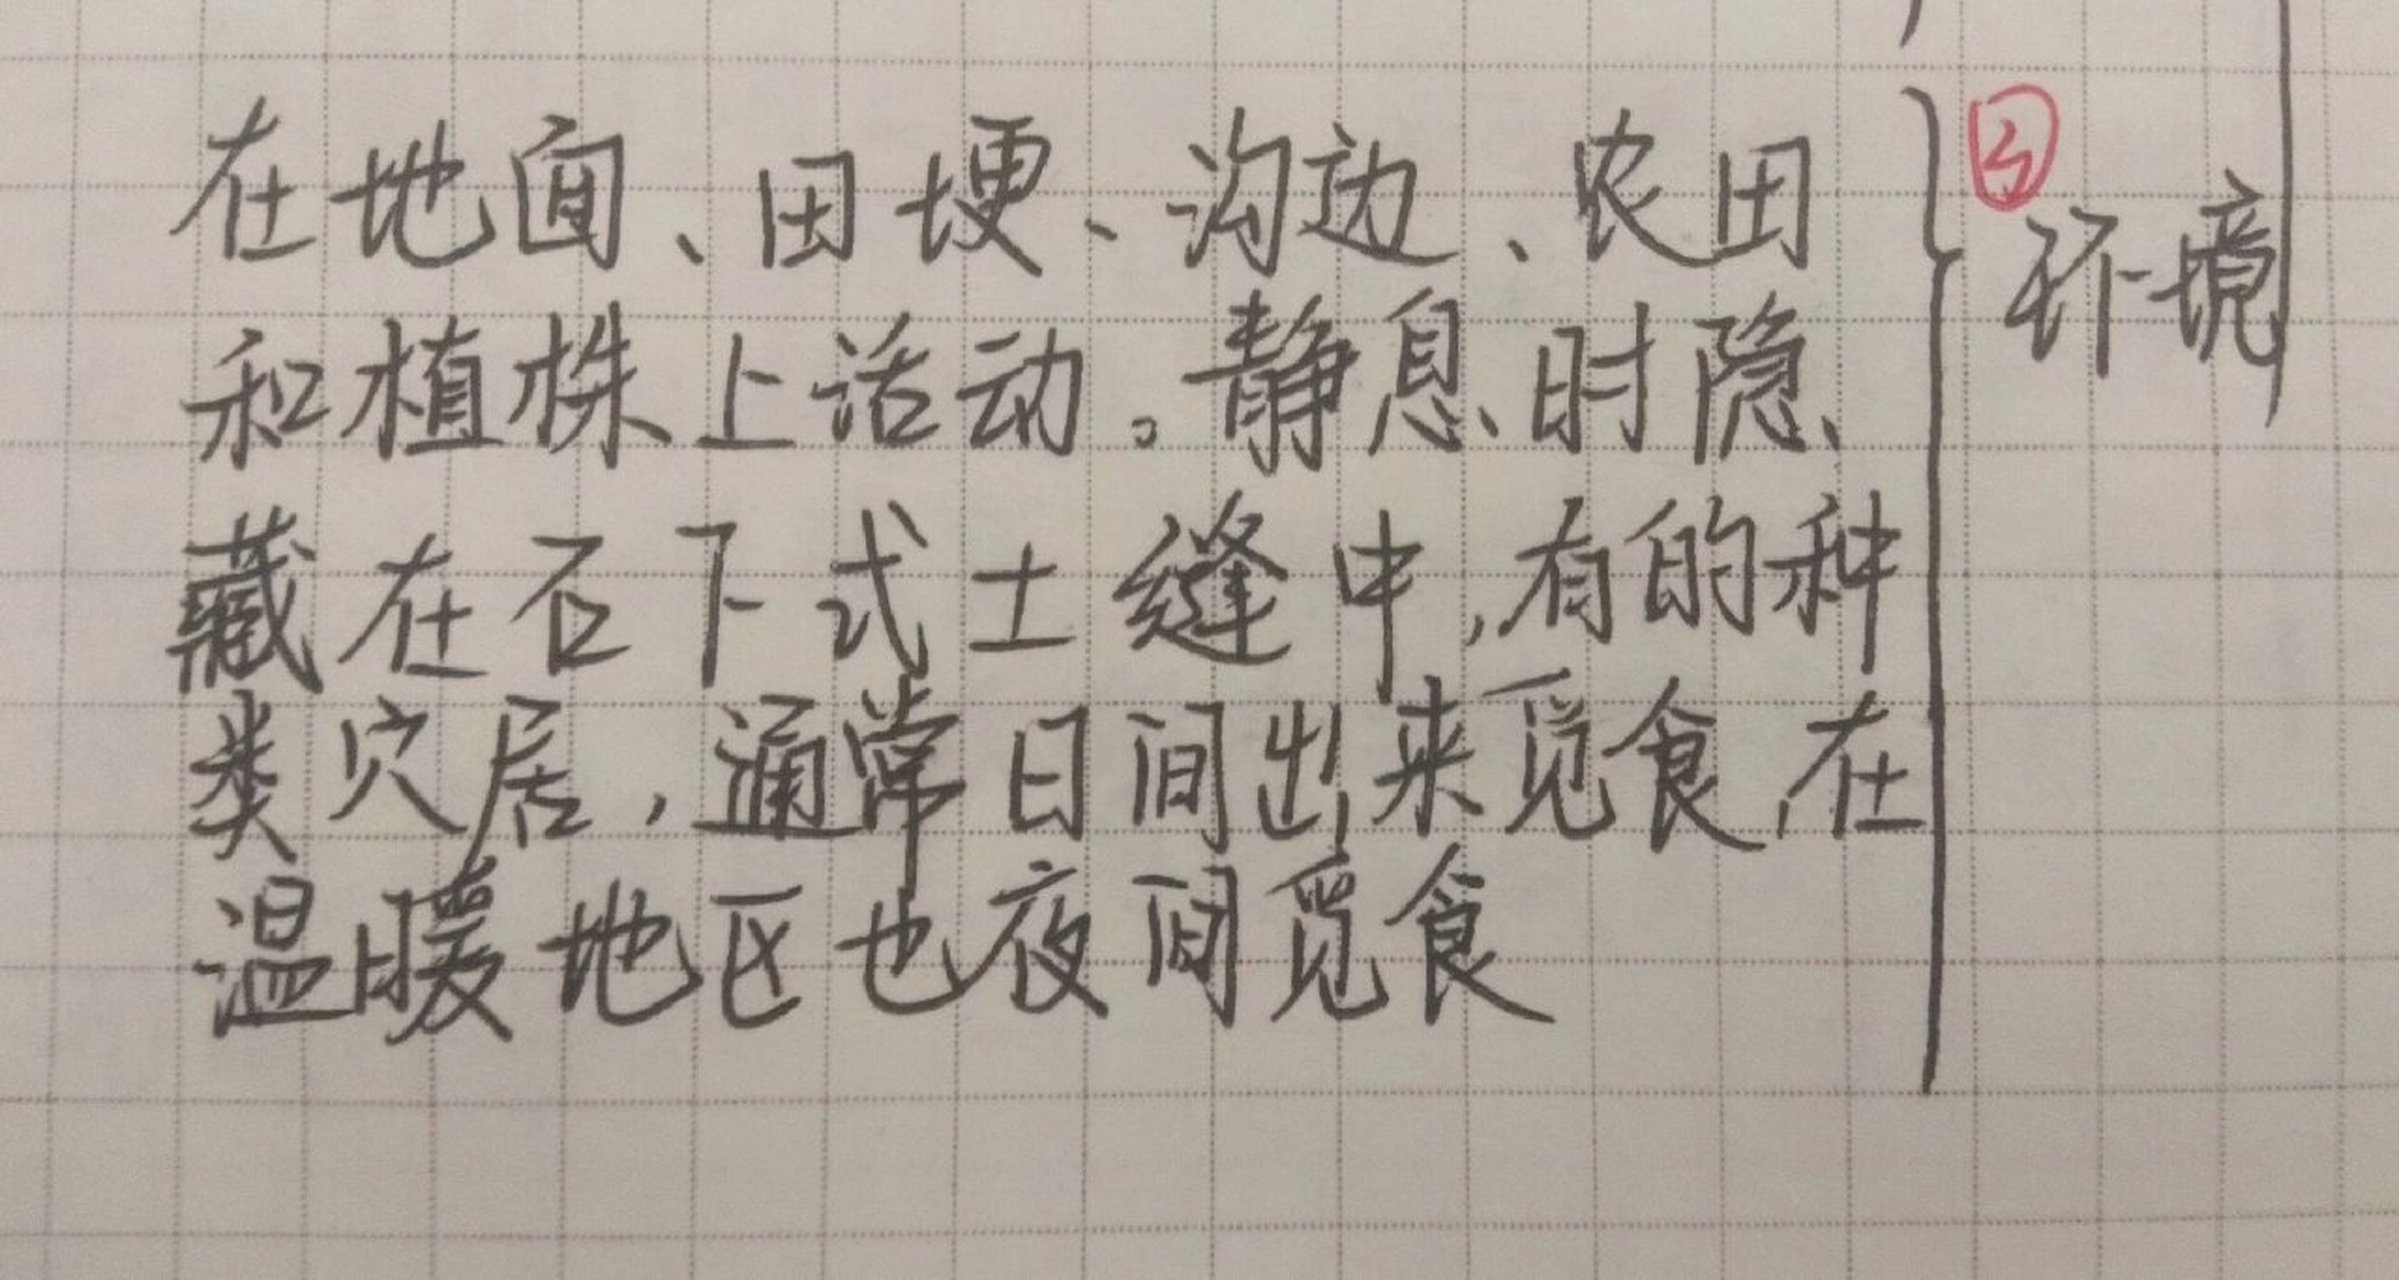 在地面、田埂、沟边、农田
和植株上活动。静息时隐
藏在石下式土缝中,有的种
类穴居,通常日间出来觅食,在
温暖地区也夜间觅食
环境